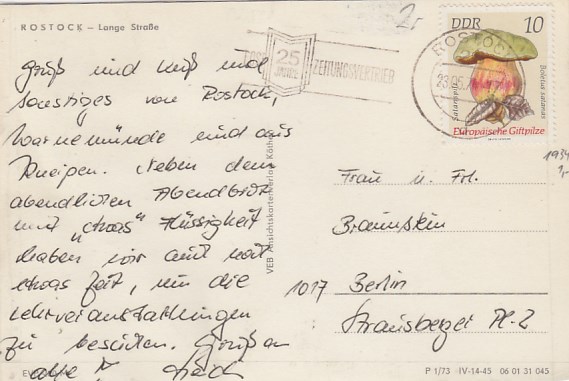 ROSTOCK – Lange Straße
2,-
25
JAHRE
ZEITUNGSVERTRIEB
ROSTOCK
DDR 10
Satanspilz
Boletus satanas
Europäische Giftpilze
1934
1,-
Gruß und Kuß und
sonstiges von Rostock,
Warnemünde und aus
Kneipen. Neben dem
abendlichen Abendbrot
mit „etwas“ Flüssigkeit
haben wir auch mal
etwas Zeit, um die
Lehrveranstaltungen
zu besuchen. Grüß an
alle
VEB Ansichtskartenverlag Köthen
Frau u. Frl.
Braunstein
1017 Berlin
Strausberger Pl. 2
P 1/73 · IV-14-45 06 01 31 045